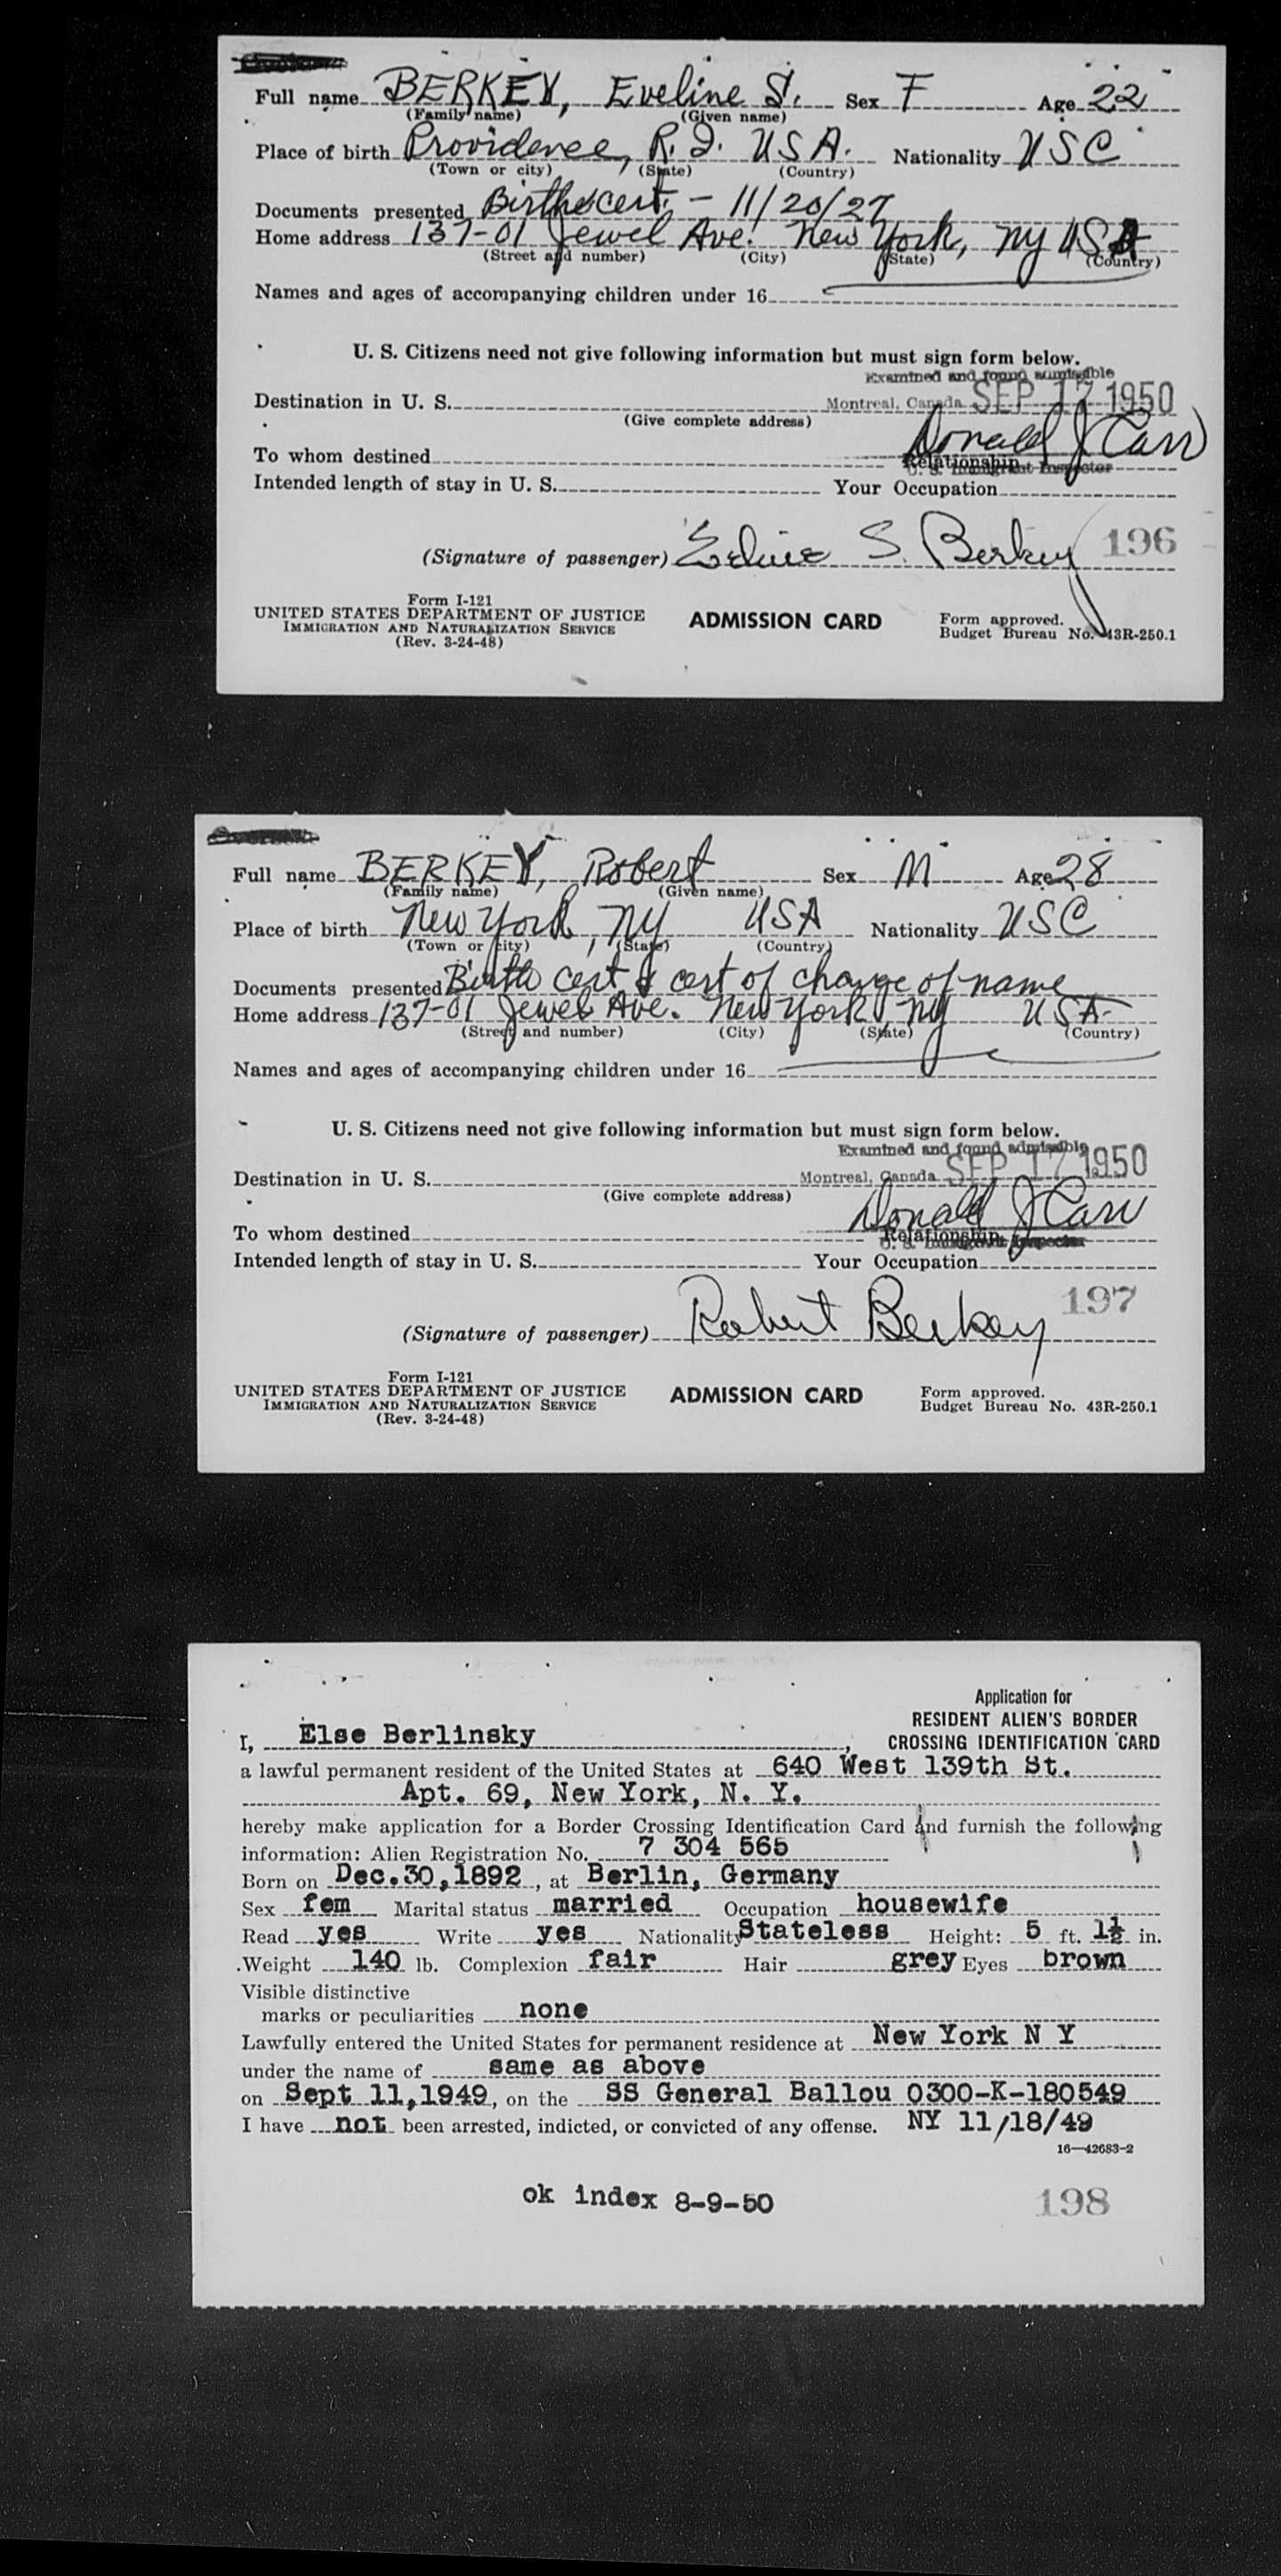 Full name BERKEY, Eveline S. Sex F Age 22
(Family name) (Given name)
Place of birth Providence, R.I. USA. Nationality USC
(Town or city) (State) (Country)
Documents presented Birth cert. - 11/20/27
Home address 137-01 Jewel Ave. New York, NY USA
(Street and number) (City) (State) (Country)
Names and ages of accompanying children under 16
U. S. Citizens need not give following information but must sign form below.
Examined and found admissible
Destination in U. S. Montreal, Canada SEP 17 1950
(Give complete address)
Donald J Carr
To whom destined Relationship
U. S. Immigrant Inspector
Intended length of stay in U. S. Your Occupation
(Signature of passenger) Eveline S. Berkey 196
Form I-121
UNITED STATES DEPARTMENT OF JUSTICE ADMISSION CARD Form approved.
IMMIGRATION AND NATURALIZATION SERVICE Budget Bureau No. 43R-250.1
(Rev. 3-24-48)
Full name BERKEY, Robert Sex M Age 28
(Family name) (Given name)
Place of birth New York, NY USA Nationality USC
(Town or city) (State) (Country)
Documents presented Birth cert & cert of change of name
Home address 137-01 Jewel Ave. New York NY USA
(Street and number) (City) (State) (Country)
Names and ages of accompanying children under 16
U. S. Citizens need not give following information but must sign form below.
Examined and found admissible
Destination in U. S. Montreal, Canada SEP 17 1950
(Give complete address)
Donald J Carr
To whom destined Relationship
U. S. Immigrant Inspector
Intended length of stay in U. S. Your Occupation
197
(Signature of passenger) Robert Berkey
Form I-121
UNITED STATES DEPARTMENT OF JUSTICE ADMISSION CARD Form approved.
IMMIGRATION AND NATURALIZATION SERVICE Budget Bureau No. 43R-250.1
(Rev. 3-24-48)
Application for
RESIDENT ALIEN'S BORDER
CROSSING IDENTIFICATION CARD
I, Else Berlinsky,
a lawful permanent resident of the United States at 640 West 139th St.
Apt. 69, New York, N. Y.
hereby make application for a Border Crossing Identification Card and furnish the following
information: Alien Registration No. 7 304 565
Born on Dec.30,1892, at Berlin, Germany
Sex fem Marital status married Occupation housewife
Read yes Write yes Nationality Stateless Height: 5 ft. 1½ in.
Weight 140 lb. Complexion fair Hair grey Eyes brown
Visible distinctive
marks or peculiarities none
Lawfully entered the United States for permanent residence at New York N Y
under the name of same as above
on Sept 11,1949, on the SS General Ballou 0300-K-180549
I have not been arrested, indicted, or convicted of any offense. NY 11/18/49
16—42683-2
ok index 8-9-50
198